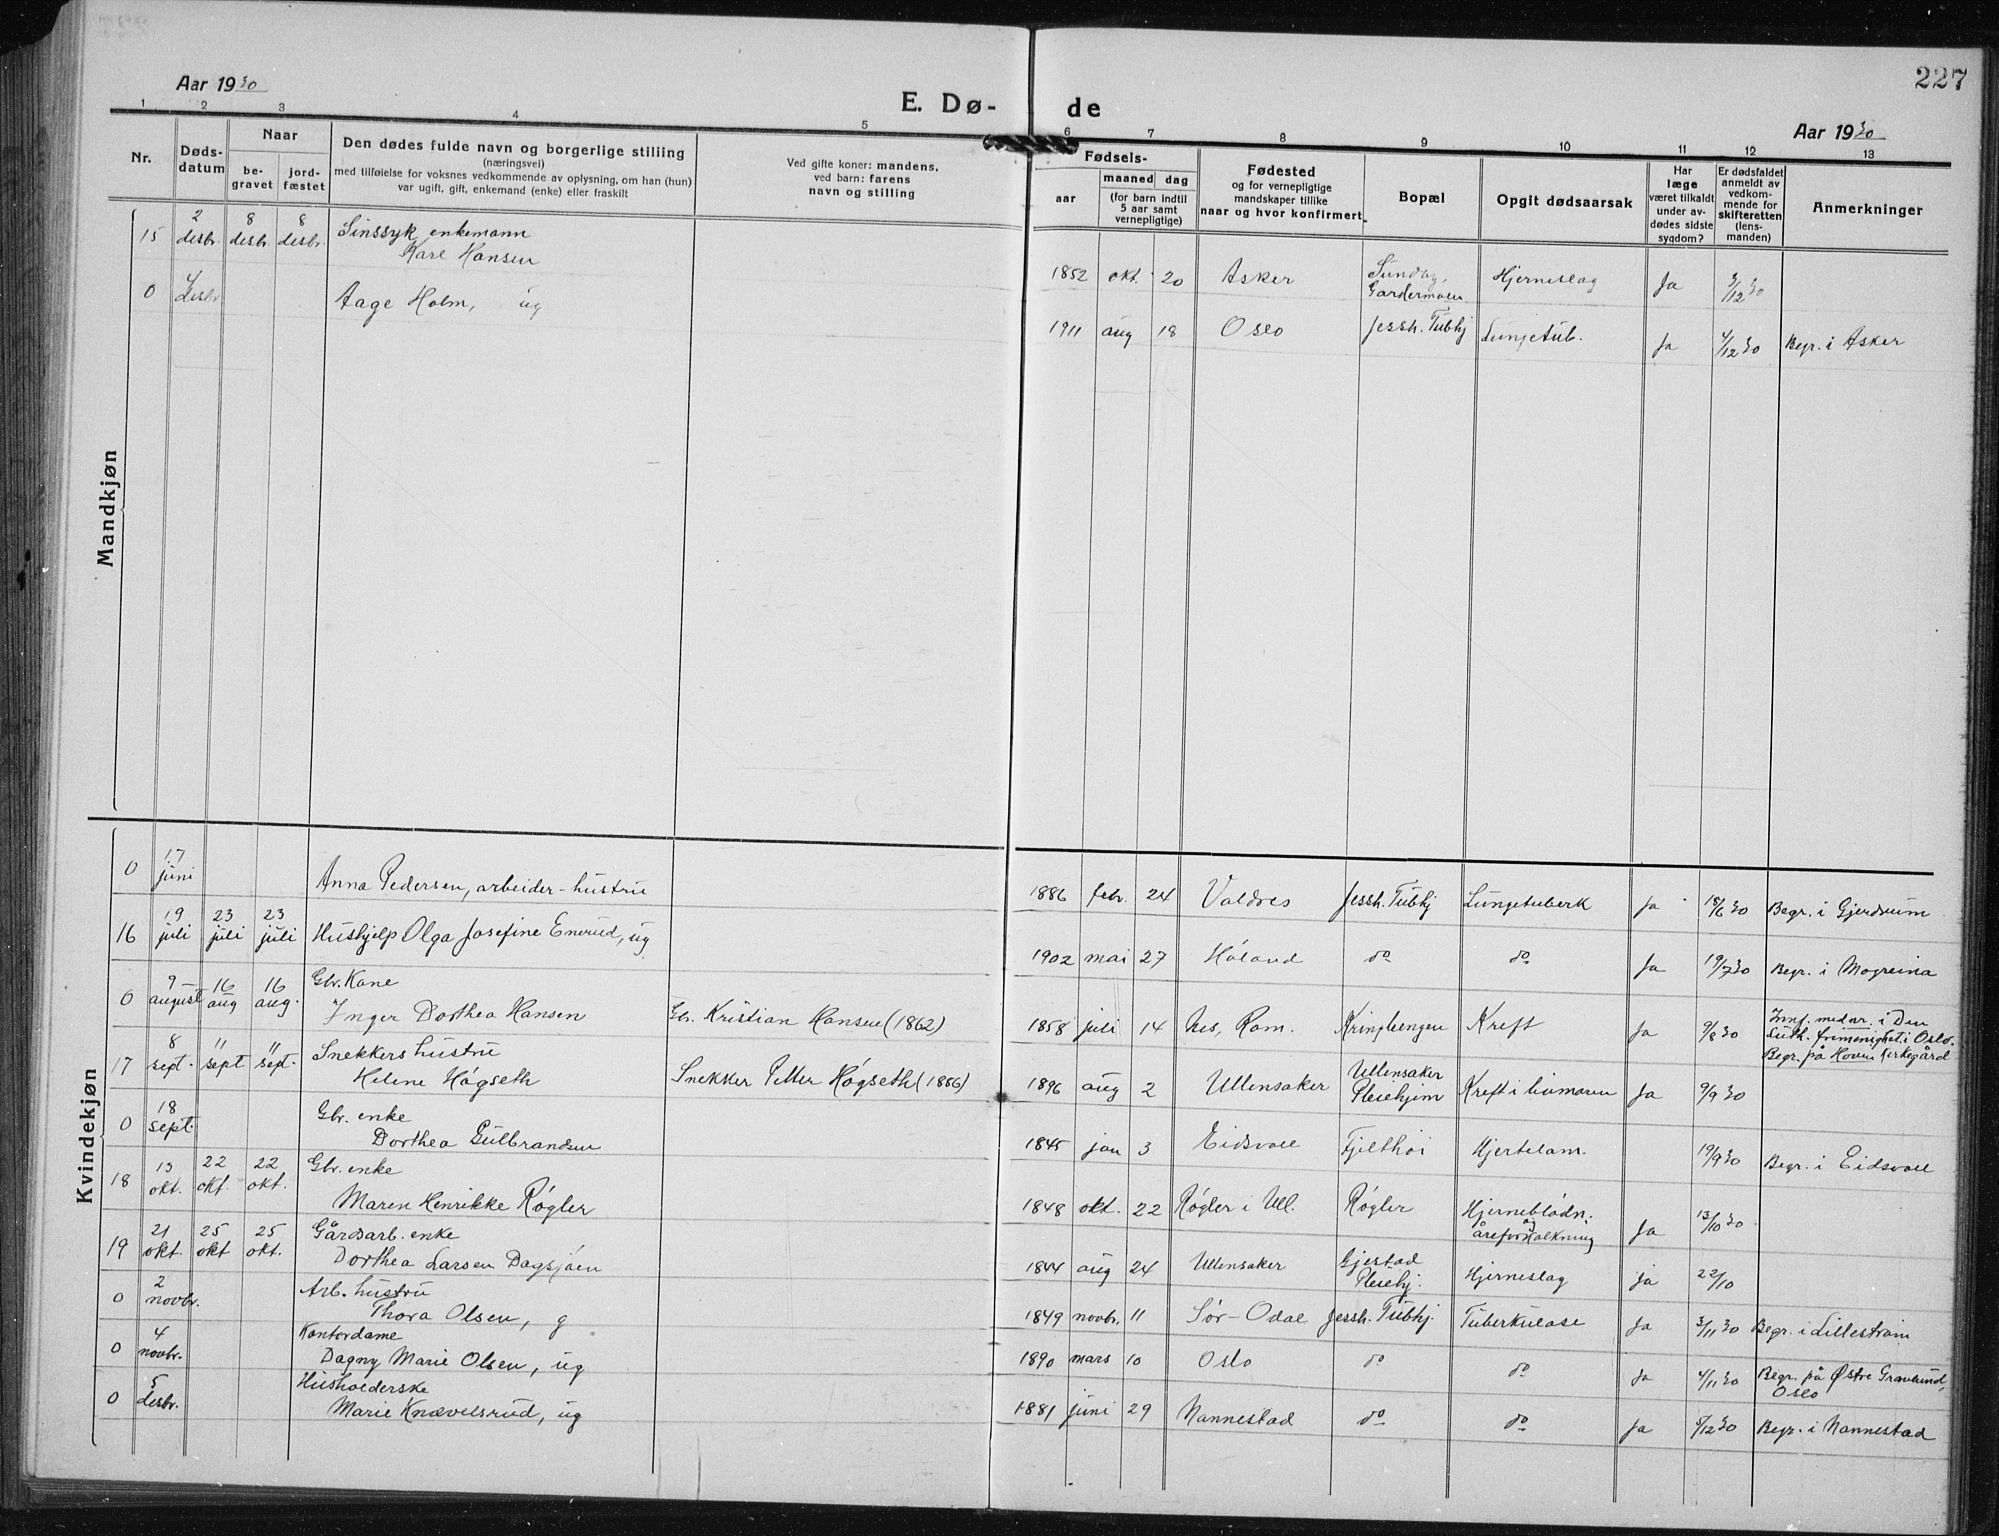 227
Aar 1930
E. Dø-
de
Aar 1930
1 2 3 4 5 6 7 8 9 10 11 12 13
Nr.
Døds-
datum
Naar
be-
gravet
jord-
fæstet
Den dødes fulde navn og borgerlige stilling
(næringsvei)
med tilføielse for voksnes vedkommende av oplysning, om han (hun)
var ugift, gift, enkemand (enke) eller fraskilt
Ved gifte koner: mandens,
ved barn: farens
navn og stilling
Fødsels-
aar
maaned dag
(for barn indtil
5 aar samt
vernepligtige)
Fødested
og for vernepligtige
mandskaper tillike
naar og hvor konfirmert
Bopæl
Opgit dødsaarsak
Har
læge
været tilkaldt
under av-
dødes sidste
sygdom?
Er dødsfaldet
anmeldt av
vedkom-
mende for
skifteretten
(lens-
manden)
Anmerkninger
Mandkjøn
15 2 desbr. 8 desbr. 8 desbr. Sinssyk enkemann
Karl Hansen 1852 okt. 20 Asker Sundby, Gardermoen Hjerneslag Ja 3/12 30
0 4 desbr. Aage Holm, ug 1911 aug 18 Oslo Jessh. Tubhj Lungetub. Ja 4/12 30 Begr. i Asker
Kvindekjøn
0 17 juni Anna Pedersen, arbeider-hustru 1886 febr. 24 Valdres Jessh. Tubhj Lungetuberk Ja 18/6 30 Begr. i Gjerdrum
16 19 juli 23 juli 23 juli Hushjelp Olga Josefine Enerud, ug 1902 mai 27 Høland do do Ja 19/7 30 Begr. i Mogreina
0 9 august 16 aug 16 aug. Gbr. Kone
Inger Dorthea Hansen Gbr. Kristian Hansen (1862) 1858 juli 14 Nes, Rom. Kringlerengen Kreft Ja 9/8 30 Innf. med nr. i Den
Luth. frimenighet i Oslo.
Begr. på Hovin kirkegård
17 8 sept. 11 sept 11 sept. Snekkers hustru
Helene Høgseth Snekker Petter Høgseth (1886) 1896 aug 2 Ullensaker Ullensaker Pleiehjem Kreft i livmoren Ja 9/9 30
0 18 sept. Gbr. enke
Dorthea Gulbrandsen 1845 jan 3 Eidsvoll Fjelthøi Hjertelam. 19/9 30 Begr. i Eidsvoll
18 13 okt. 22 okt. 22 okt. Gbr. enke
Maren Henrikke Røgler 1848 okt. 22 Røgler i Ull. Røgler Hjerneblødn. og åreforkalkning Ja 13/10 30
19 21 okt. 25 okt 25 okt. Gårdsarb. enke
Dorthea Larsen Dagsjøen 1844 aug 24 Ullensaker Gjestad Pleiehj. Hjerneslag ja 22/10
0 2 novbr. Arb. hustru
Thora Olsen, g 1849 novbr. 11 Sör-Odal Jessh. Tubhj. Tuberkulose Ja 3/11 30 Begr. i Lillestrøm
0 4 novbr. Kontordame
Dagny Marie Olsen, ug 1890 mars 10 Oslo do do Ja 4/11 30 Begr. på Østre Gravlund,
Oslo
0 5 desbr. Husholderske
Marie Knævelsrud, ug 1881 juni 29 Nannestad do do Ja 5/12 30 Begr. i Nannestad